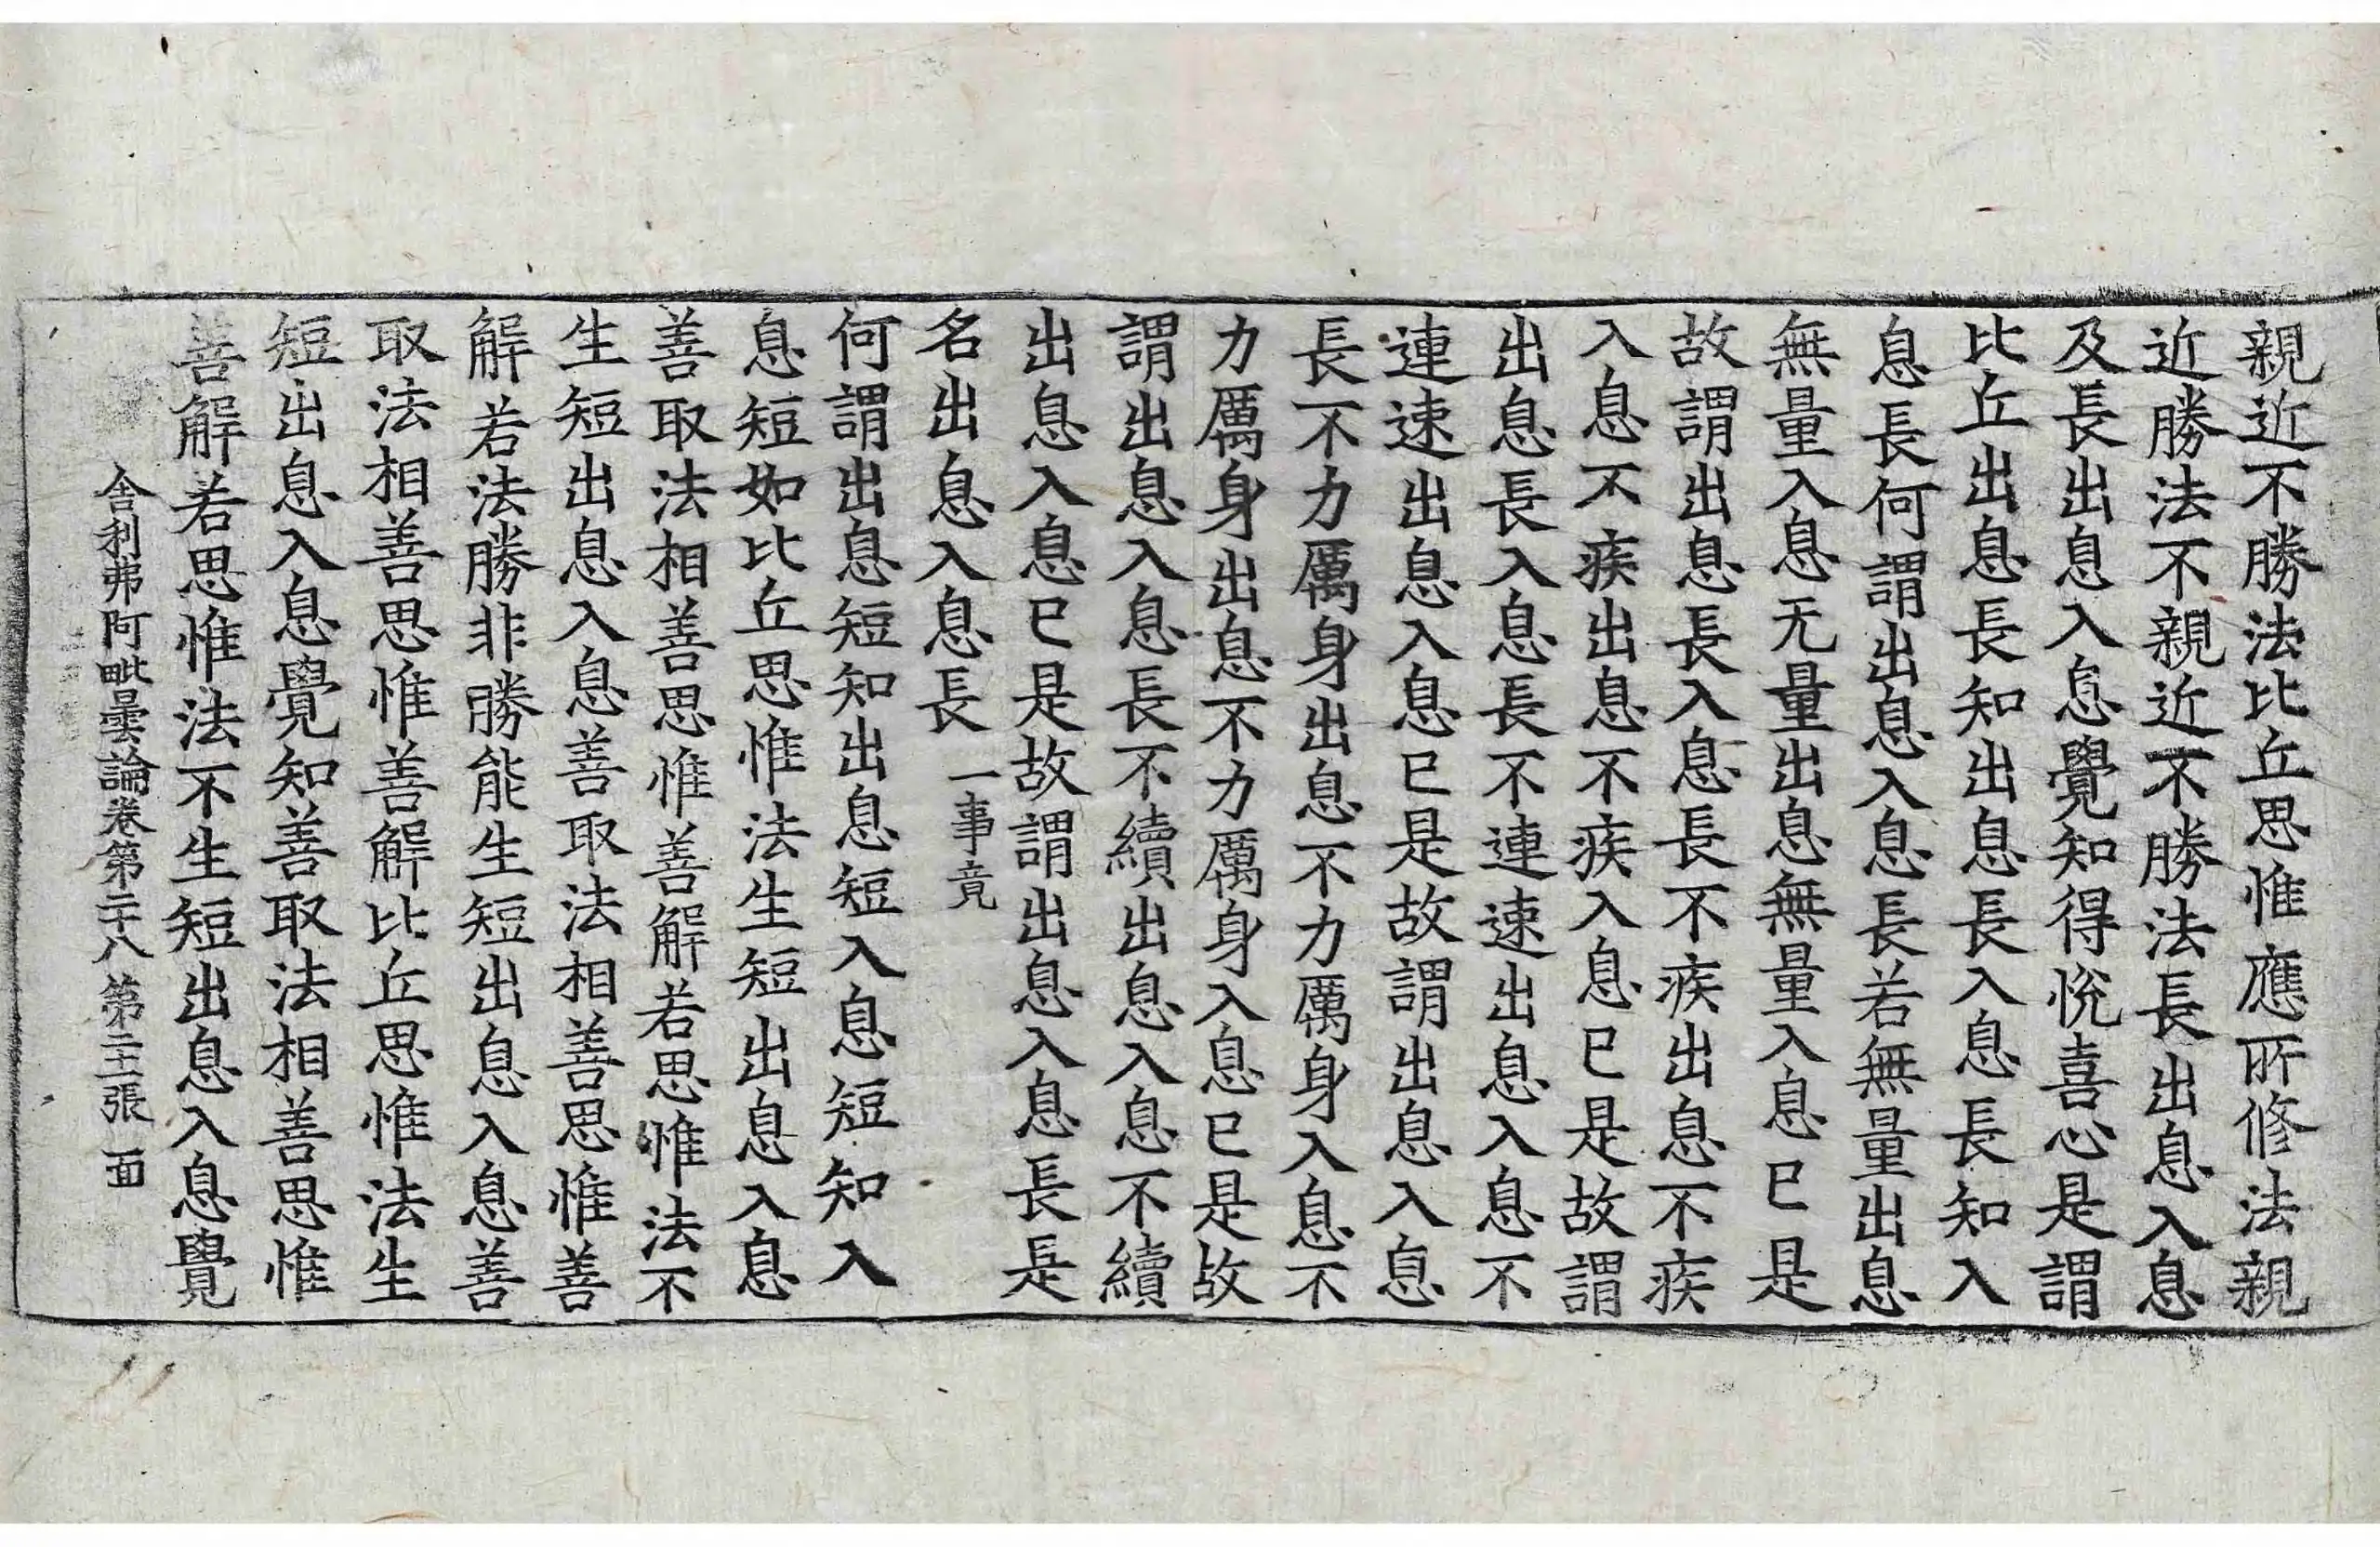 親近不勝法比丘思惟應所修法親
近勝法不親近不勝法長出息入息
及長出息入息覺知得悅喜心是謂
比丘出息長知出息長入息長知入
息長何謂出息入息長若無量出息
無量入息无量出息無量入息已是
故謂出息長入息長不疾出息不疾
入息不疾出息不疾入息已是故謂
出息長入息長不連速出息入息不
連速出息入息已是故謂出息入息
長不力厲身出息不力厲身入息不
力厲身出息不力厲身入息已是故
謂出息入息長不續出息入息不續
出息入息已是故謂出息入息長是
名出息入息長 一事竟
何謂出息短知出息短入息短知入
息短如比丘思惟法生短出息入息
善取法相善思惟善解若思惟法不
生短出息入息善取法相善思惟善
解若法勝非勝能生短出息入息善
取法相善思惟善解比丘思惟法生
短出息入息覺知善取法相善思惟
善解若思惟法不生短出息入息覺
舍利弗阿毗曇論卷第二十八 第二十二張 面